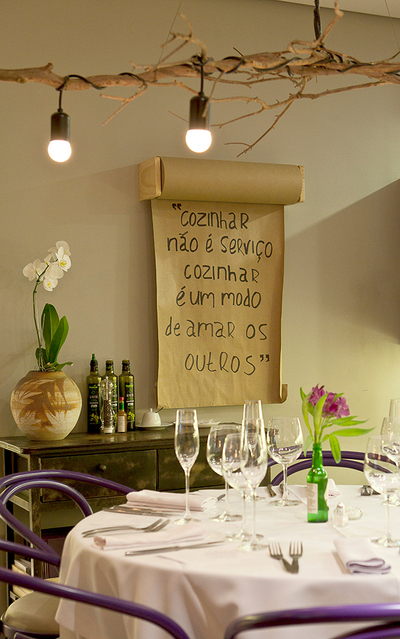 "COZINHAR
não é SERVIÇO
COZINHAR
é UM MODO
de AMAR OS
OUTROS"